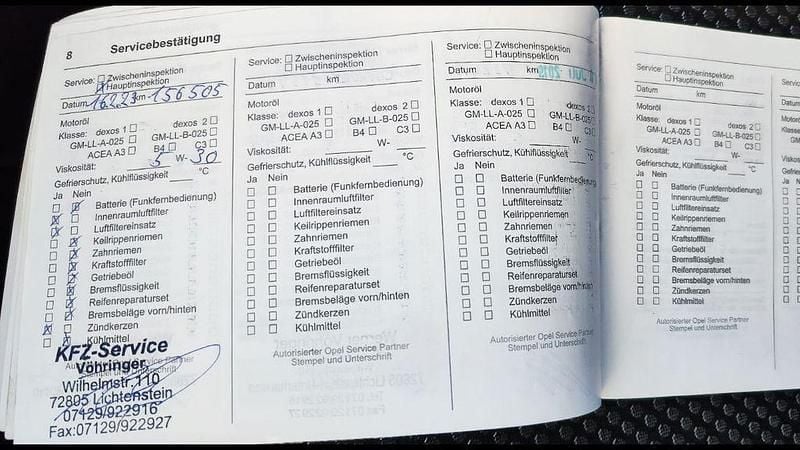 8 Servicebestätigung
Service: Zwischeninspektion
Hauptinspektion
Datum 16.2.23 km 156505
Motoröl
Klasse: dexos 1 dexos 2
GM-LL-A-025 GM-LL-B-025
ACEA A3 B4 C3
Viskosität: 5 W- 30
Gefrierschutz, Kühlflüssigkeit °C
Ja Nein
Batterie (Funkfernbedienung)
Innenraumluftfilter
Luftfiltereinsatz
Keilrippenriemen
Zahnriemen
Kraftstofffilter
Getriebeöl
Bremsflüssigkeit
Reifenreparaturset
Bremsbeläge vorn/hinten
Zündkerzen
Kühlmittel
KFZ-Service
Vöhringer
Wilhelmstr. 110
72805 Lichtenstein
07129/922916
Fax:07129/922927
Service: Zwischeninspektion
Hauptinspektion
Datum km
Motoröl
Klasse: dexos 1 dexos 2
GM-LL-A-025 GM-LL-B-025
ACEA A3 B4 C3
Viskosität: W-
Gefrierschutz, Kühlflüssigkeit °C
Ja Nein
Batterie (Funkfernbedienung)
Innenraumluftfilter
Luftfiltereinsatz
Keilrippenriemen
Zahnriemen
Kraftstofffilter
Getriebeöl
Bremsflüssigkeit
Reifenreparaturset
Bremsbeläge vorn/hinten
Zündkerzen
Kühlmittel
Autorisierter Opel Service Partner
Stempel und Unterschrift
Service: Zwischeninspektion
Hauptinspektion
Datum km
Motoröl
Klasse: dexos 1 dexos 2
GM-LL-A-025 GM-LL-B-025
ACEA A3 B4 C3
Viskosität: W-
Gefrierschutz, Kühlflüssigkeit °C
Ja Nein
Batterie (Funkfernbedienung)
Innenraumluftfilter
Luftfiltereinsatz
Keilrippenriemen
Zahnriemen
Kraftstofffilter
Getriebeöl
Bremsflüssigkeit
Reifenreparaturset
Bremsbeläge vorn/hinten
Zündkerzen
Kühlmittel
Autorisierter Opel Service Partner
Stempel und Unterschrift
Service: Zwischeninspektion
Hauptinspektion
Datum km
Motoröl
Klasse: dexos 1 dexos 2
GM-LL-A-025 GM-LL-B-025
ACEA A3 B4 C3
Viskosität: W-
Gefrierschutz, Kühlflüssigkeit °C
Ja Nein
Batterie (Funkfernbedienung)
Innenraumluftfilter
Luftfiltereinsatz
Keilrippenriemen
Zahnriemen
Kraftstofffilter
Getriebeöl
Bremsflüssigkeit
Reifenreparaturset
Bremsbeläge vorn/hinten
Zündkerzen
Kühlmittel
Autorisierter Opel Service Partner
Stempel und Unterschrift